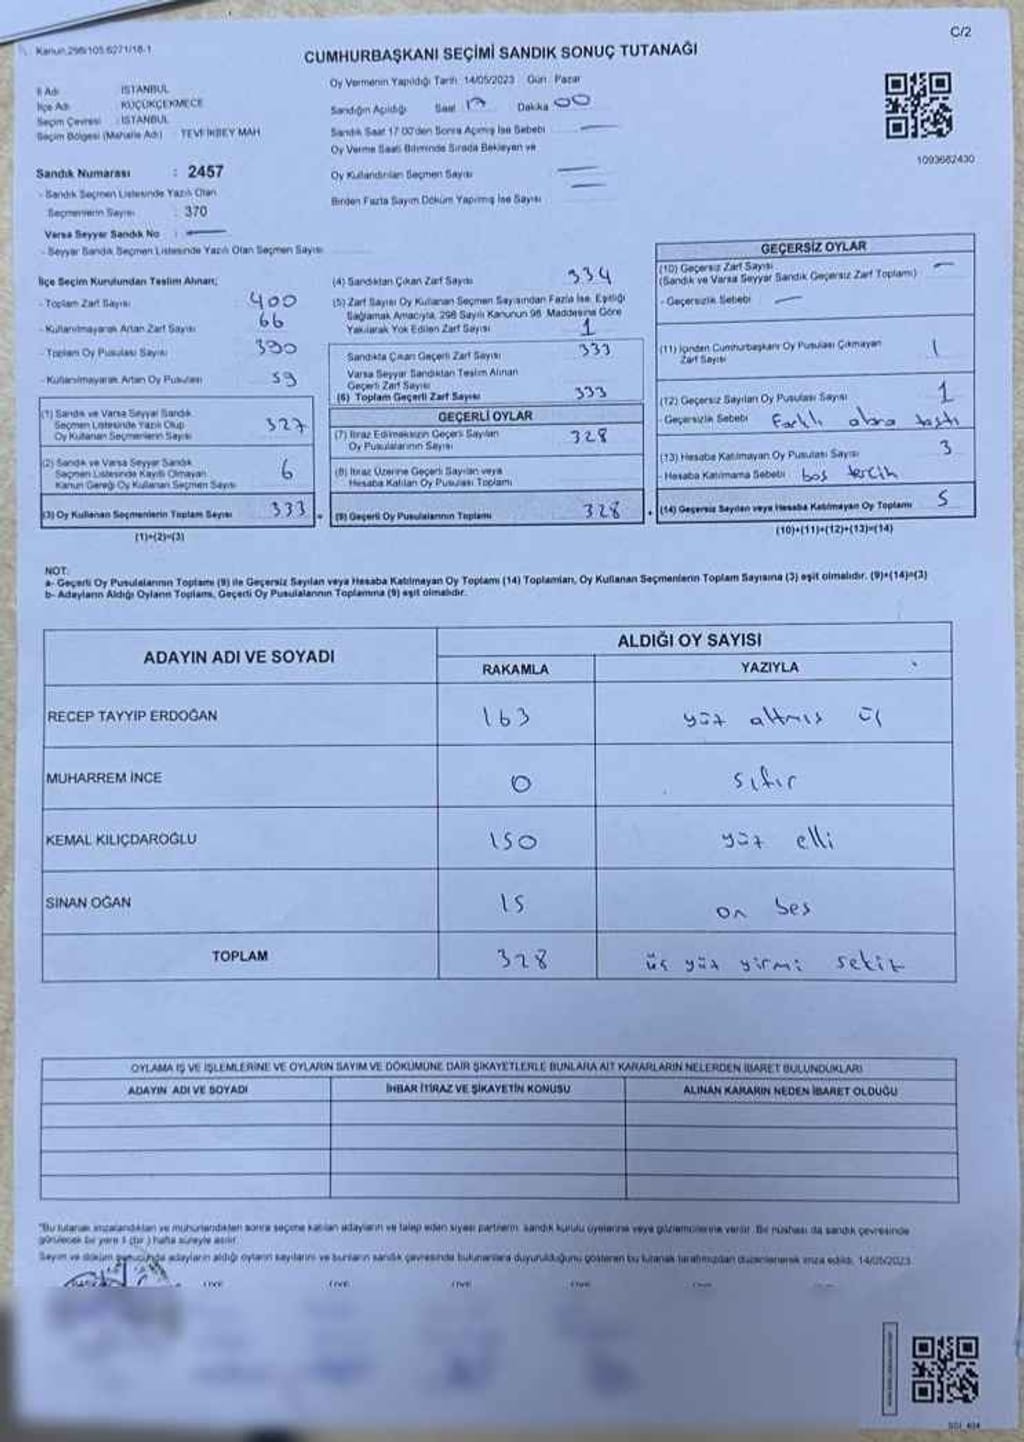 C/2
Kanun 298/105 6271/18-1
CUMHURBAŞKANI SEÇİMİ SANDIK SONUÇ TUTANAĞI
İl Adı : İSTANBUL
İlçe Adı : KÜÇÜKÇEKMECE
Seçim Çevresi : İSTANBUL
Seçim Bölgesi (Mahalle Adı) TEVFİKBEY MAH
Sandık Numarası : 2457
- Sandık Seçmen Listesinde Yazılı Olan
Seçmenlerin Sayısı : 370
Varsa Seyyar Sandık No :
- Seyyar Sandık Seçmen Listesinde Yazılı Olan Seçmen Sayısı
Oy Vermenin Yapıldığı Tarih: 14/05/2023 Gün: Pazar
Sandığın Açıldığı Saat 17 Dakika 00
Sandık Saat 17:00'den Sonra Açılmış İse Sebebi
Oy Verme Saati Bitiminde Sırada Bekleyen ve
Oy Kullandırılan Seçmen Sayısı
Birden Fazla Sayım Döküm Yapılmış İse Sayısı
1093682430
İlçe Seçim Kurulundan Teslim Alınan;
- Toplam Zarf Sayısı 400
- Kullanılmayarak Artan Zarf Sayısı 66
- Toplam Oy Pusulası Sayısı 390
- Kullanılmayarak Artan Oy Pusulası 59
(1) Sandık ve Varsa Seyyar Sandık
Seçmen Listesinde Yazılı Olup
Oy Kullanan Seçmenlerin Sayısı 327
(2) Sandık ve Varsa Seyyar Sandık
Seçmen Listesinde Kayıtlı Olmayan
Kanun Gereği Oy Kullanan Seçmen Sayısı 6
(3) Oy Kullanan Seçmenlerin Toplam Sayısı 333
(1)+(2)=(3)
(4) Sandıktan Çıkan Zarf Sayısı 334
(5) Zarf Sayısı Oy Kullanan Seçmen Sayısından Fazla İse, Eşitliği
Sağlamak Amacıyla, 298 Sayılı Kanunun 98. Maddesine Göre
Yakılarak Yok Edilen Zarf Sayısı 1
Sandıkta Çıkan Geçerli Zarf Sayısı 333
Varsa Seyyar Sandıktan Teslim Alınan
Geçerli Zarf Sayısı
(6) Toplam Geçerli Zarf Sayısı 333
GEÇERLİ OYLAR
(7) İtiraz Edilmeksizin Geçerli Sayılan
Oy Pusulalarının Sayısı 328
(8) İtiraz Üzerine Geçerli Sayılan veya
Hesaba Katılan Oy Pusulası Toplamı
(9) Geçerli Oy Pusulalarının Toplamı 328
GEÇERSİZ OYLAR
(10) Geçersiz Zarf Sayısı
(Sandık ve Varsa Seyyar Sandık Geçersiz Zarf Toplamı)
- Geçersizlik Sebebi
(11) İçinden Cumhurbaşkanı Oy Pusulası Çıkmayan
Zarf Sayısı 1
(12) Geçersiz Sayılan Oy Pusulası Sayısı 1
- Geçersizlik Sebebi Farklı alana taştı
(13) Hesaba Katılmayan Oy Pusulası Sayısı 3
- Hesaba Katılmama Sebebi boş tercih
(14) Geçersiz Sayılan veya Hesaba Katılmayan Oy Toplamı 5
(10)+(11)+(12)+(13)=(14)
NOT:
a- Geçerli Oy Pusulalarının Toplamı (9) ile Geçersiz Sayılan veya Hesaba Katılmayan Oy Toplamı (14) Toplamları, Oy Kullanan Seçmenlerin Toplam Sayısına (3) eşit olmalıdır. (9)+(14)=(3)
b- Adayların Aldığı Oyların Toplamı, Geçerli Oy Pusulalarının Toplamına (9) eşit olmalıdır.
ADAYIN ADI VE SOYADI ALDIĞI OY SAYISI
RAKAMLA YAZIYLA
RECEP TAYYIP ERDOĞAN 163 yüz altmış üç
MUHARREM İNCE 0 sıfır
KEMAL KILIÇDAROĞLU 150 yüz elli
SİNAN OĞAN 15 on beş
TOPLAM 328 üç yüz yirmi sekiz
OYLAMA İŞ VE İŞLEMLERİNE VE OYLARIN SAYIM VE DÖKÜMÜNE DAİR ŞİKAYETLERLE BUNLARA AİT KARARLARIN NELERDEN İBARET BULUNDUKLARI
ADAYIN ADI VE SOYADI İHBAR İTİRAZ VE ŞİKAYETİN KONUSU ALINAN KARARIN NEDEN İBARET OLDUĞU
"Bu tutanak imzalandıktan ve mühürlendikten sonra seçime katılan adayların ve talep eden siyasi partilerin sandık kurulu üyelerine veya gözlemcilerine verilir. Bir nüshası da sandık çevresinde
görülecek bir yere 1 (bir) hafta süreyle asılır.
Sayım ve döküm sonucunda adayların aldığı oyların sayılarını ve bunların sandık çevresinde bulunanlara duyurulduğunu gösteren bu tutanak tarafımızdan düzenlenerek imza edildi. 14/05/2023